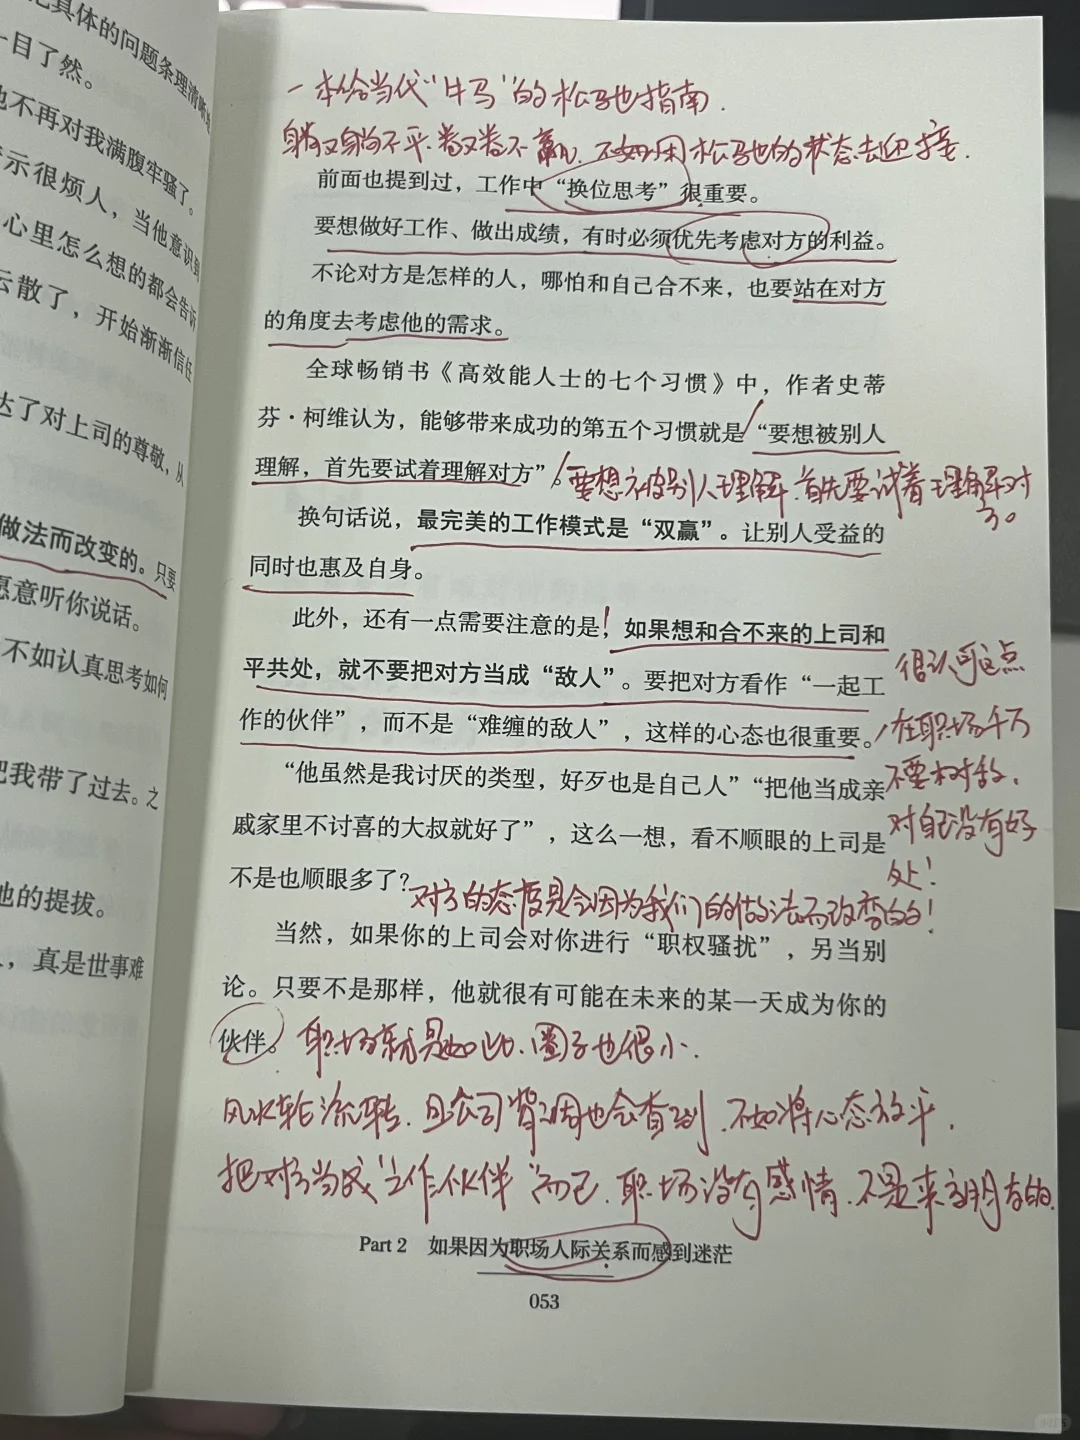 把具体的问题条理清晰地
一目了然。
他不再对我满腹牢骚了。
示很烦人，当他意识到
心里怎么想的都会告诉
云散了，开始渐渐信任
达了对上司的尊敬，从
做法而改变的。只要
愿意听你说话。
不如认真思考如何
把我带了过去。之
他的提拔。
，真是世事难
一本给当代“牛马”的松弛指南.
躺又躺不平.卷又卷不赢.不如用松弛的状态去迎接.
前面也提到过，工作中“换位思考”很重要。
要想做好工作、做出成绩，有时必须优先考虑对方的利益。
不论对方是怎样的人，哪怕和自己合不来，也要站在对方
的角度去考虑他的需求。
全球畅销书《高效能人士的七个习惯》中，作者史蒂
芬·柯维认为，能够带来成功的第五个习惯就是“要想被别人
理解，首先要试着理解对方”。
要想被别人理解.首先要试着理解对
方。
换句话说，最完美的工作模式是“双赢”。让别人受益的
同时也惠及自身。
此外，还有一点需要注意的是，如果想和合不来的上司和
平共处，就不要把对方当成“敌人”。要把对方看作“一起工
作的伙伴”，而不是“难缠的敌人”，这样的心态也很重要。
很认可这点
在职场千万
不要树敌.
对自己没有好
处！
“他虽然是我讨厌的类型，好歹也是自己人”“把他当成亲
戚家里不讨喜的大叔就好了”，这么一想，看不顺眼的上司是
不是也顺眼多了？
对方的态度是会因为我们的做法而改变的！
当然，如果你的上司会对你进行“职权骚扰”，另当别
论。只要不是那样，他就很有可能在未来的某一天成为你的
伙伴。
职场就是如此.圈子也很小.
风水轮流转.且公司背调也会查到.不如将心态放平.
把对方当成“工作伙伴”而已.职场没有感情.不是来交朋友的.
Part 2 如果因为职场人际关系而感到迷茫
053